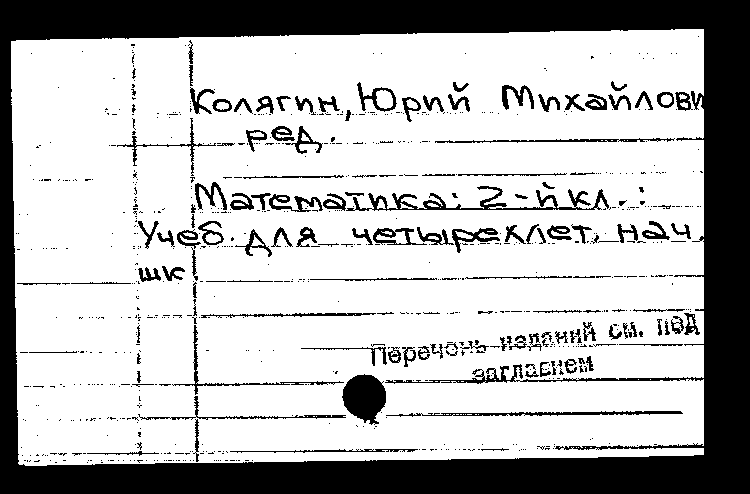 Колягин, Юрий Михайлови
ред.
Математика: 2-й кл. :
Учеб. для четырехлет. нач.
шк.
Перечень изданий см. под
заглавием